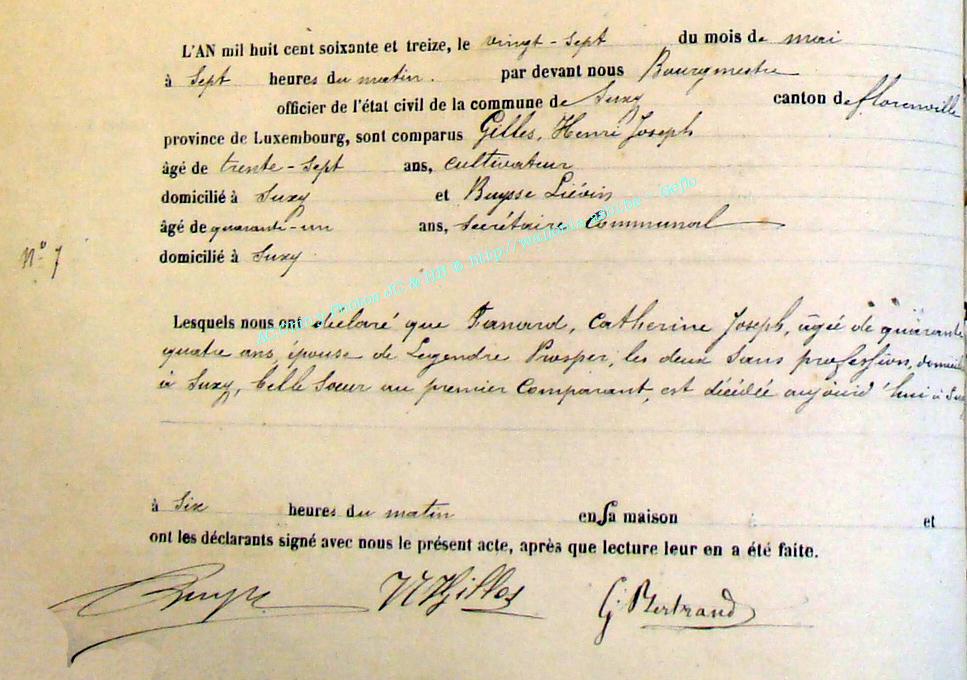 L'AN mil huit cent soixante et treize, le vingt-sept du mois de mai
à sept heures du matin. par devant nous Bourgmestre
officier de l'état civil de la commune de Suxy canton de florenville
province de Luxembourg, sont comparus Gilles, Henri Joseph
âgé de trente-sept ans, cultivateur
domicilié à Suxy et Buysse Liévin
âgé de quarante-un ans, secrétaire Communal
N° 7
domicilié à Suxy
Lesquels nous ont déclaré que Fanard, Catherine Joseph, agée de quarante
quatre ans, épouse de Legendre Prosper, les deux sans profession,
à Suxy, belle soeur au premier Comparant, est décédée aujourd'hui à
à six heures du matin en sa maison et
ont les déclarants signé avec nous le présent acte, après que lecture leur en a été faite.
Buysse HJGilles G. Bertrand